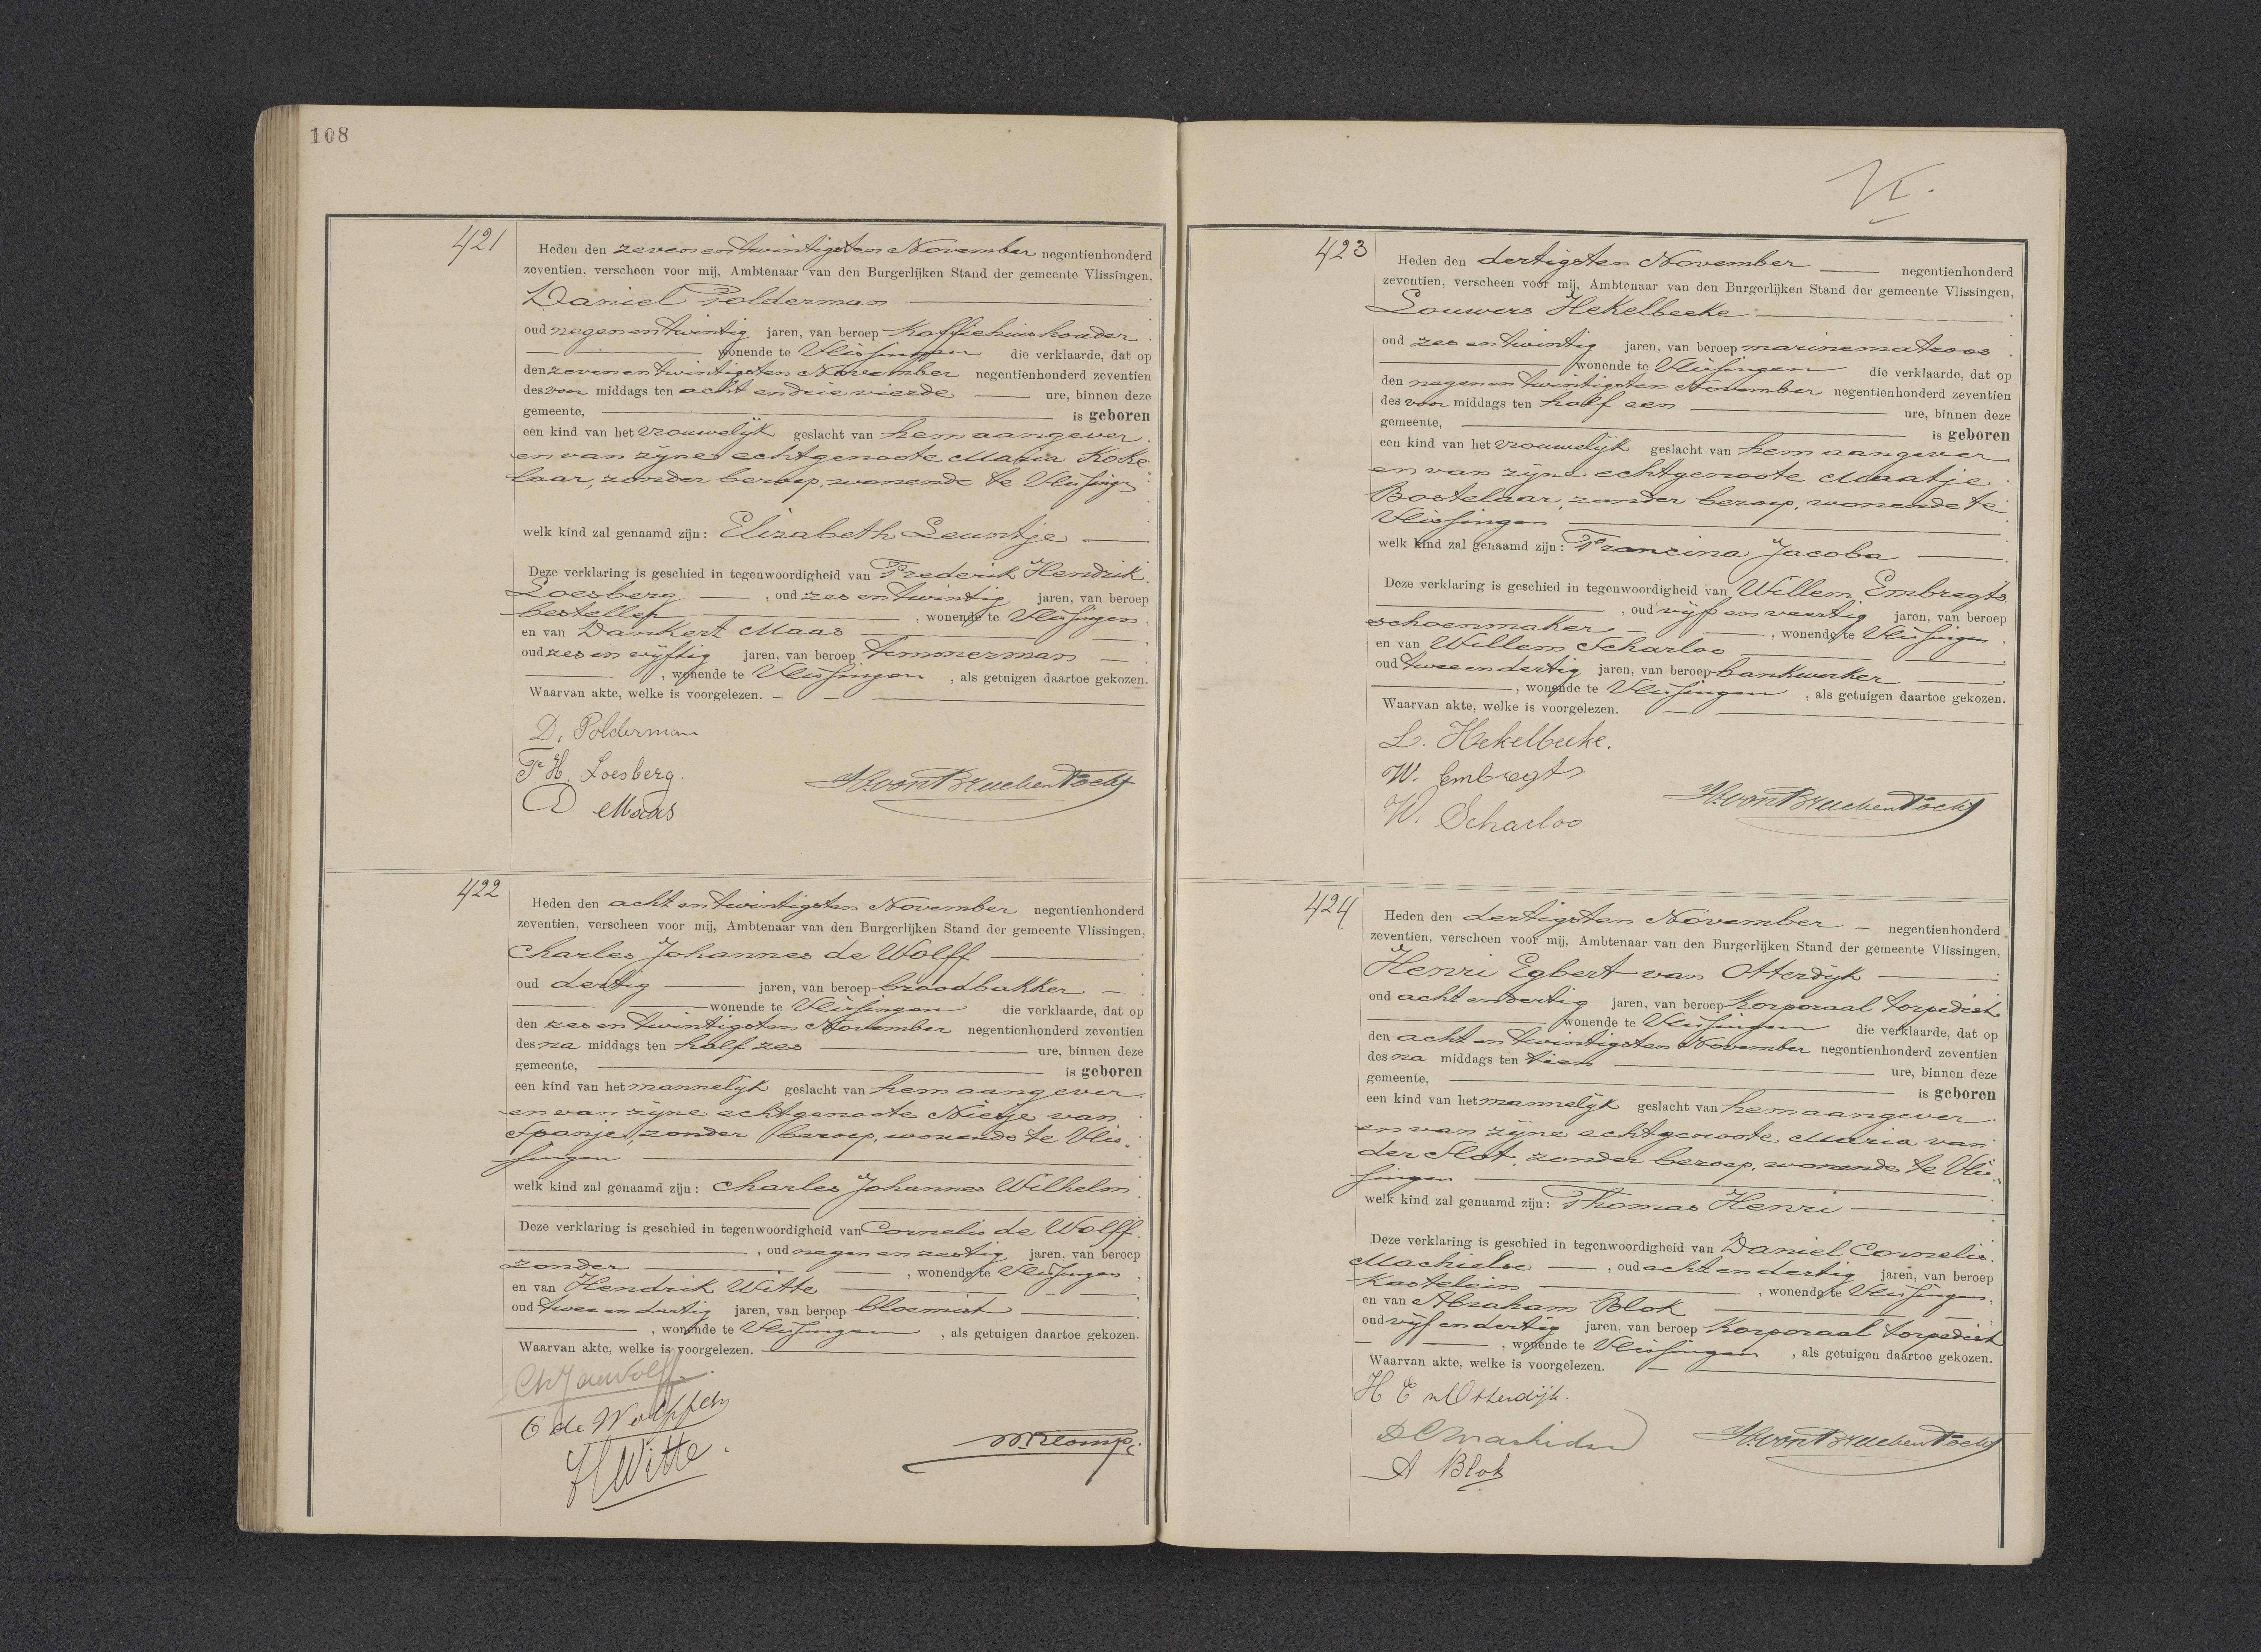 108
421
Heden den zeven en twintigsten November negentienhonderd
zeventien, verscheen voor mij, Ambtenaar van den Burgerlijken Stand der gemeente Vlissingen,
Daniel Polderman
oud negenentwintig jaren, van beroep Koffiehuishouder
wonende te Vlissingen die verklaarde, dat op
den zeven en twintigsten November negentienhonderd zeventien
des voor middags ten acht en drie vierde ure, binnen deze
gemeente, is geboren
een kind van het vrouwelijk geslacht van hem aangever
en van zijne echtgenoote Maria Koke
laar, zonder beroep, wonende te Vlissingen
welk kind zal genaamd zijn: Elizabeth Leuntje
Deze verklaring is geschied in tegenwoordigheid van Frederik Hendrik
Loesberg, oud zes en twintig jaren, van beroep
besteller, wonende te Vlissingen
en van Dankert Maas
oud zes en vijftig jaren, van beroep timmerman
, wonende te Vlissingen, als getuigen daartoe gekozen.
Waarvan akte, welke is voorgelezen.
D. Polderman
F. H. Loesberg.
D Maas
422
Heden den acht en twintigsten November negentienhonderd
zeventien, verscheen voor mij, Ambtenaar van den Burgerlijken Stand der gemeente Vlissingen,
Charles Johannes de Wolff
oud dertig jaren, van beroep broodbakker
wonende te Vlissingen die verklaarde, dat op
den zes en twintigsten November negentienhonderd zeventien
des na middags ten half zes ure, binnen deze
gemeente, is geboren
een kind van het mannelijk geslacht van hem aangever
en van zijne echtgenoote Nietje van
Spanje, zonder beroep, wonende te Vlis-
singen
welk kind zal genaamd zijn: Charles Johannes Wilhelm
Deze verklaring is geschied in tegenwoordigheid van Cornelis de Wolff
, oud negen en zestig jaren, van beroep
zonder, wonende te Vlissingen,
en van Hendrik Witte
oud twee en dertig jaren, van beroep bloemist
, wonende te Vlissingen, als getuigen daartoe gekozen.
Waarvan akte, welke is voorgelezen.
C de Wolff
H Witte.
423
Heden den dertigsten November negentienhonderd
zeventien, verscheen voor mij, Ambtenaar van den Burgerlijken Stand der gemeente Vlissingen,
Louwers Hekelbeeke
oud zes en twintig jaren, van beroep marinematroos
wonende te Vlissingen die verklaarde, dat op
den negen en twintigsten November negentienhonderd zeventien
des voor middags ten half een ure, binnen deze
gemeente, is geboren
een kind van het vrouwelijk geslacht van hem aangever
en van zijne echtgenoote Maatje
Bostelaar, zonder beroep, wonende te
Vlissingen
welk kind zal genaamd zijn: Francina Jacoba
Deze verklaring is geschied in tegenwoordigheid van Willem Embregts
, oud vijf en veertig jaren, van beroep
schoenmaker, wonende te Vlissingen
en van Willem Scharloo
oud twee en dertig jaren, van beroep bankwerker
, wonende te Vlissingen, als getuigen daartoe gekozen.
Waarvan akte, welke is voorgelezen.
L. Hekelbeeke.
W. Embregts
W. Scharloo
424
Heden den dertigsten November negentienhonderd
zeventien, verscheen voor mij, Ambtenaar van den Burgerlijken Stand der gemeente Vlissingen,
Henri Egbert van Otterdijk
oud acht en dertig jaren, van beroep Korporaal torpedist
wonende te Vlissingen die verklaarde, dat op
den acht en twintigsten November negentienhonderd zeventien
des na middags ten tien ure, binnen deze
gemeente, is geboren
een kind van het mannelijk geslacht van hem aangever
en van zijne echtgenoote Maria van
der Slot, zonder beroep, wonende te Vlis-
singen
welk kind zal genaamd zijn: Thomas Henri
Deze verklaring is geschied in tegenwoordigheid van Daniel Cornelis
Machielse, oud acht en dertig jaren, van beroep
Kastelein, wonende te Vlissingen,
en van Abraham Blok
oud vijf en dertig jaren, van beroep Korporaal torpedist
, wonende te Vlissingen, als getuigen daartoe gekozen.
Waarvan akte, welke is voorgelezen.
H E v Otterdijk.
D C Machielse
A Blok